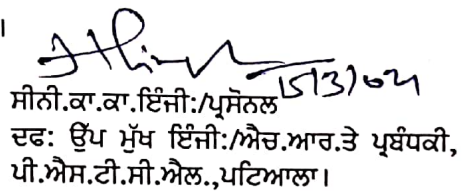 ।
15/3/024
ਸੀਨੀ.ਕਾ.ਕਾ.ਇੰਜੀ:/ਪ੍ਰਸੋਨਲ
ਦਫ: ਉੱਪ ਮੁੱਖ ਇੰਜੀ:/ਐਚ.ਆਰ.ਤੇ ਪ੍ਰਬੰਧਕੀ,
ਪੀ.ਐਸ.ਟੀ.ਸੀ.ਐਲ.,ਪਟਿਆਲਾ।